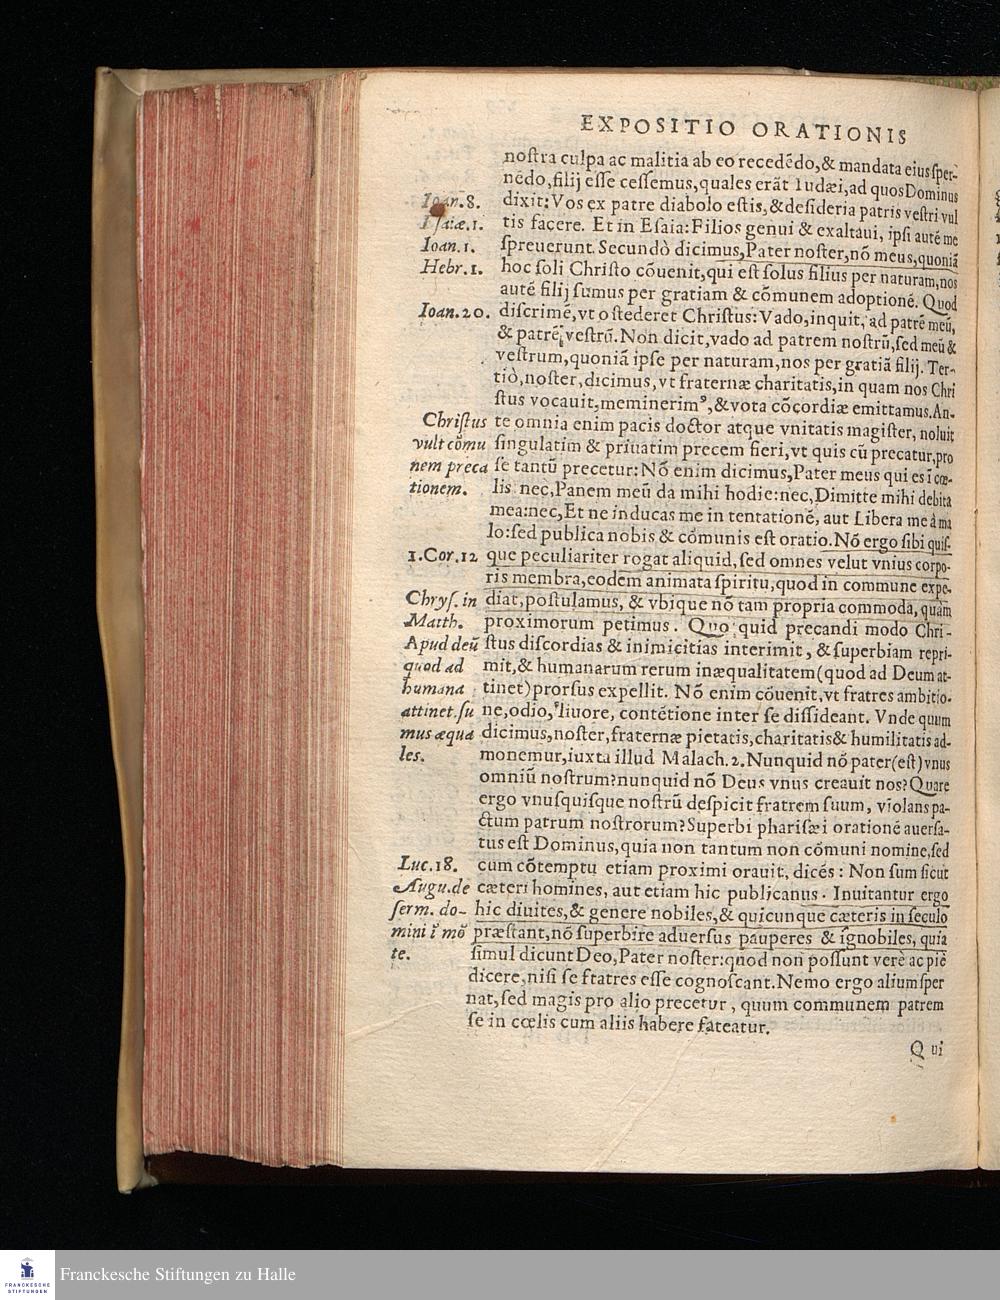 EXPOSITIO ORATIONIS
noſtra culpa ac malitia ab eo recedēdo,& mandata eius ſper-
nēdo,filij eſſe ceſſemus,quales erāt Iudæi,ad quos Dominus
Ioan.8. dixit: Vos ex patre diabolo eſtis,& deſideria patris veſtri vul
Iſaiæ.1. tis facere. Et in Eſaia: Filios genui & exaltaui, ipſi autē me
Ioan.1. ſpreuerunt. Secundò dicimus,Pater noſter,nō meus,quoniā
Hebr.1. hoc ſoli Chriſto cōuenit,qui eſt ſolus filius per naturam,nos
autē filij ſumus per gratiam & cōmunem adoptionē. Quod
Ioan.20. diſcrimē,vt oſtederet Chriſtus: Vado,inquit, ad patrē meū,
& patrē veſtrū. Non dicit,vado ad patrem noſtrū,ſed meū &
veſtrum,quoniā ipſe per naturam,nos per gratiā filij. Ter-
tiò,noſter,dicimus,vt fraternæ charitatis,in quam nos Chri
ſtus vocauit,meminerimꝰ,& vota cōcordiæ emittamus. An-
Chriſtus te omnia enim pacis doctor atque vnitatis magiſter, noluit
vult cōmu ſingulatim & priuatim precem fieri,vt quis cū precatur,pro
nem preca ſe tantū precetur: Nō enim dicimus,Pater meus qui es ī cœ-
tionem. lis: nec,Panem meū da mihi hodie: nec,Dimitte mihi debita
mea: nec,Et ne inducas me in tentationē, aut Libera me à ma
lo: ſed publica nobis & cōmunis eſt oratio. Nō ergo ſibi quiſ-
1.Cor.12 que peculiariter rogat aliquid,ſed omnes velut vnius corpo-
ris membra,eodem animata ſpiritu,quod in commune expe-
Chryſ. in diat,poſtulamus, & vbique nō tam propria commoda, quàm
Matth. proximorum petimus. Quo quid precandi modo Chri-
Apud deū ſtus diſcordias & inimicitias interimit, & ſuperbiam repri-
quod ad mit,& humanarum rerum inæqualitatem (quod ad Deum at-
humana tinet) prorſus expellit. Nō enim cōuenit,vt fratres ambitio-
attinet.ſu ne,odio, liuore, contētione inter ſe diſſideant. Vnde quum
mus æqua dicimus,noſter,fraternæ pietatis,charitatis & humilitatis ad-
les. monemur,iuxta illud Malach.2. Nunquid nō pater (eſt) vnus
omniū noſtrum? nunquid nō Deus vnus creauit nos? Quare
ergo vnuſquiſque noſtrū deſpicit fratrem ſuum, violans pa-
ctum patrum noſtrorum? Superbi phariſæi orationē auerſa-
tus eſt Dominus,quia non tantum non cōmuni nomine,ſed
Luc.18. cum cōtemptu etiam proximi orauit, dicēs: Non ſum ſicut
Augu.de cæteri homines, aut etiam hic publicanus. Inuitantur ergo
ſerm. do- hic diuites,& genere nobiles,& quicunque cæteris in ſeculo
mini ī mō præſtant,nō ſuperbire aduerſus pauperes & ignobiles, quia
te. ſimul dicunt Deo,Pater noſter: quod non poſſunt verè ac piè
dicere,niſi ſe fratres eſſe cognoſcant. Nemo ergo alium ſper
nat,ſed magis pro alio precetur, quum communem patrem
ſe in cœlis cum aliis habere fateatur.
Qui
FRANCKESCHE
STIFTUNGEN
Franckesche Stiftungen zu Halle